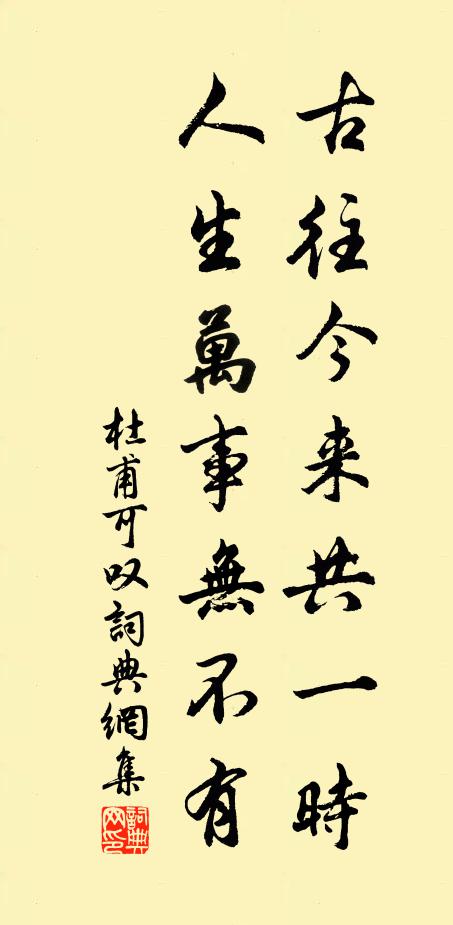 古往今来共一時
人生萬事無不有
杜甫可叹詞典網集
詞典网印